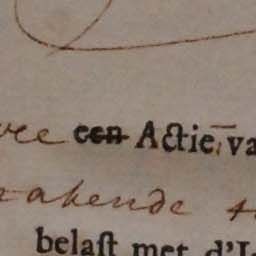 een Actie, va
akende
belast met d'I